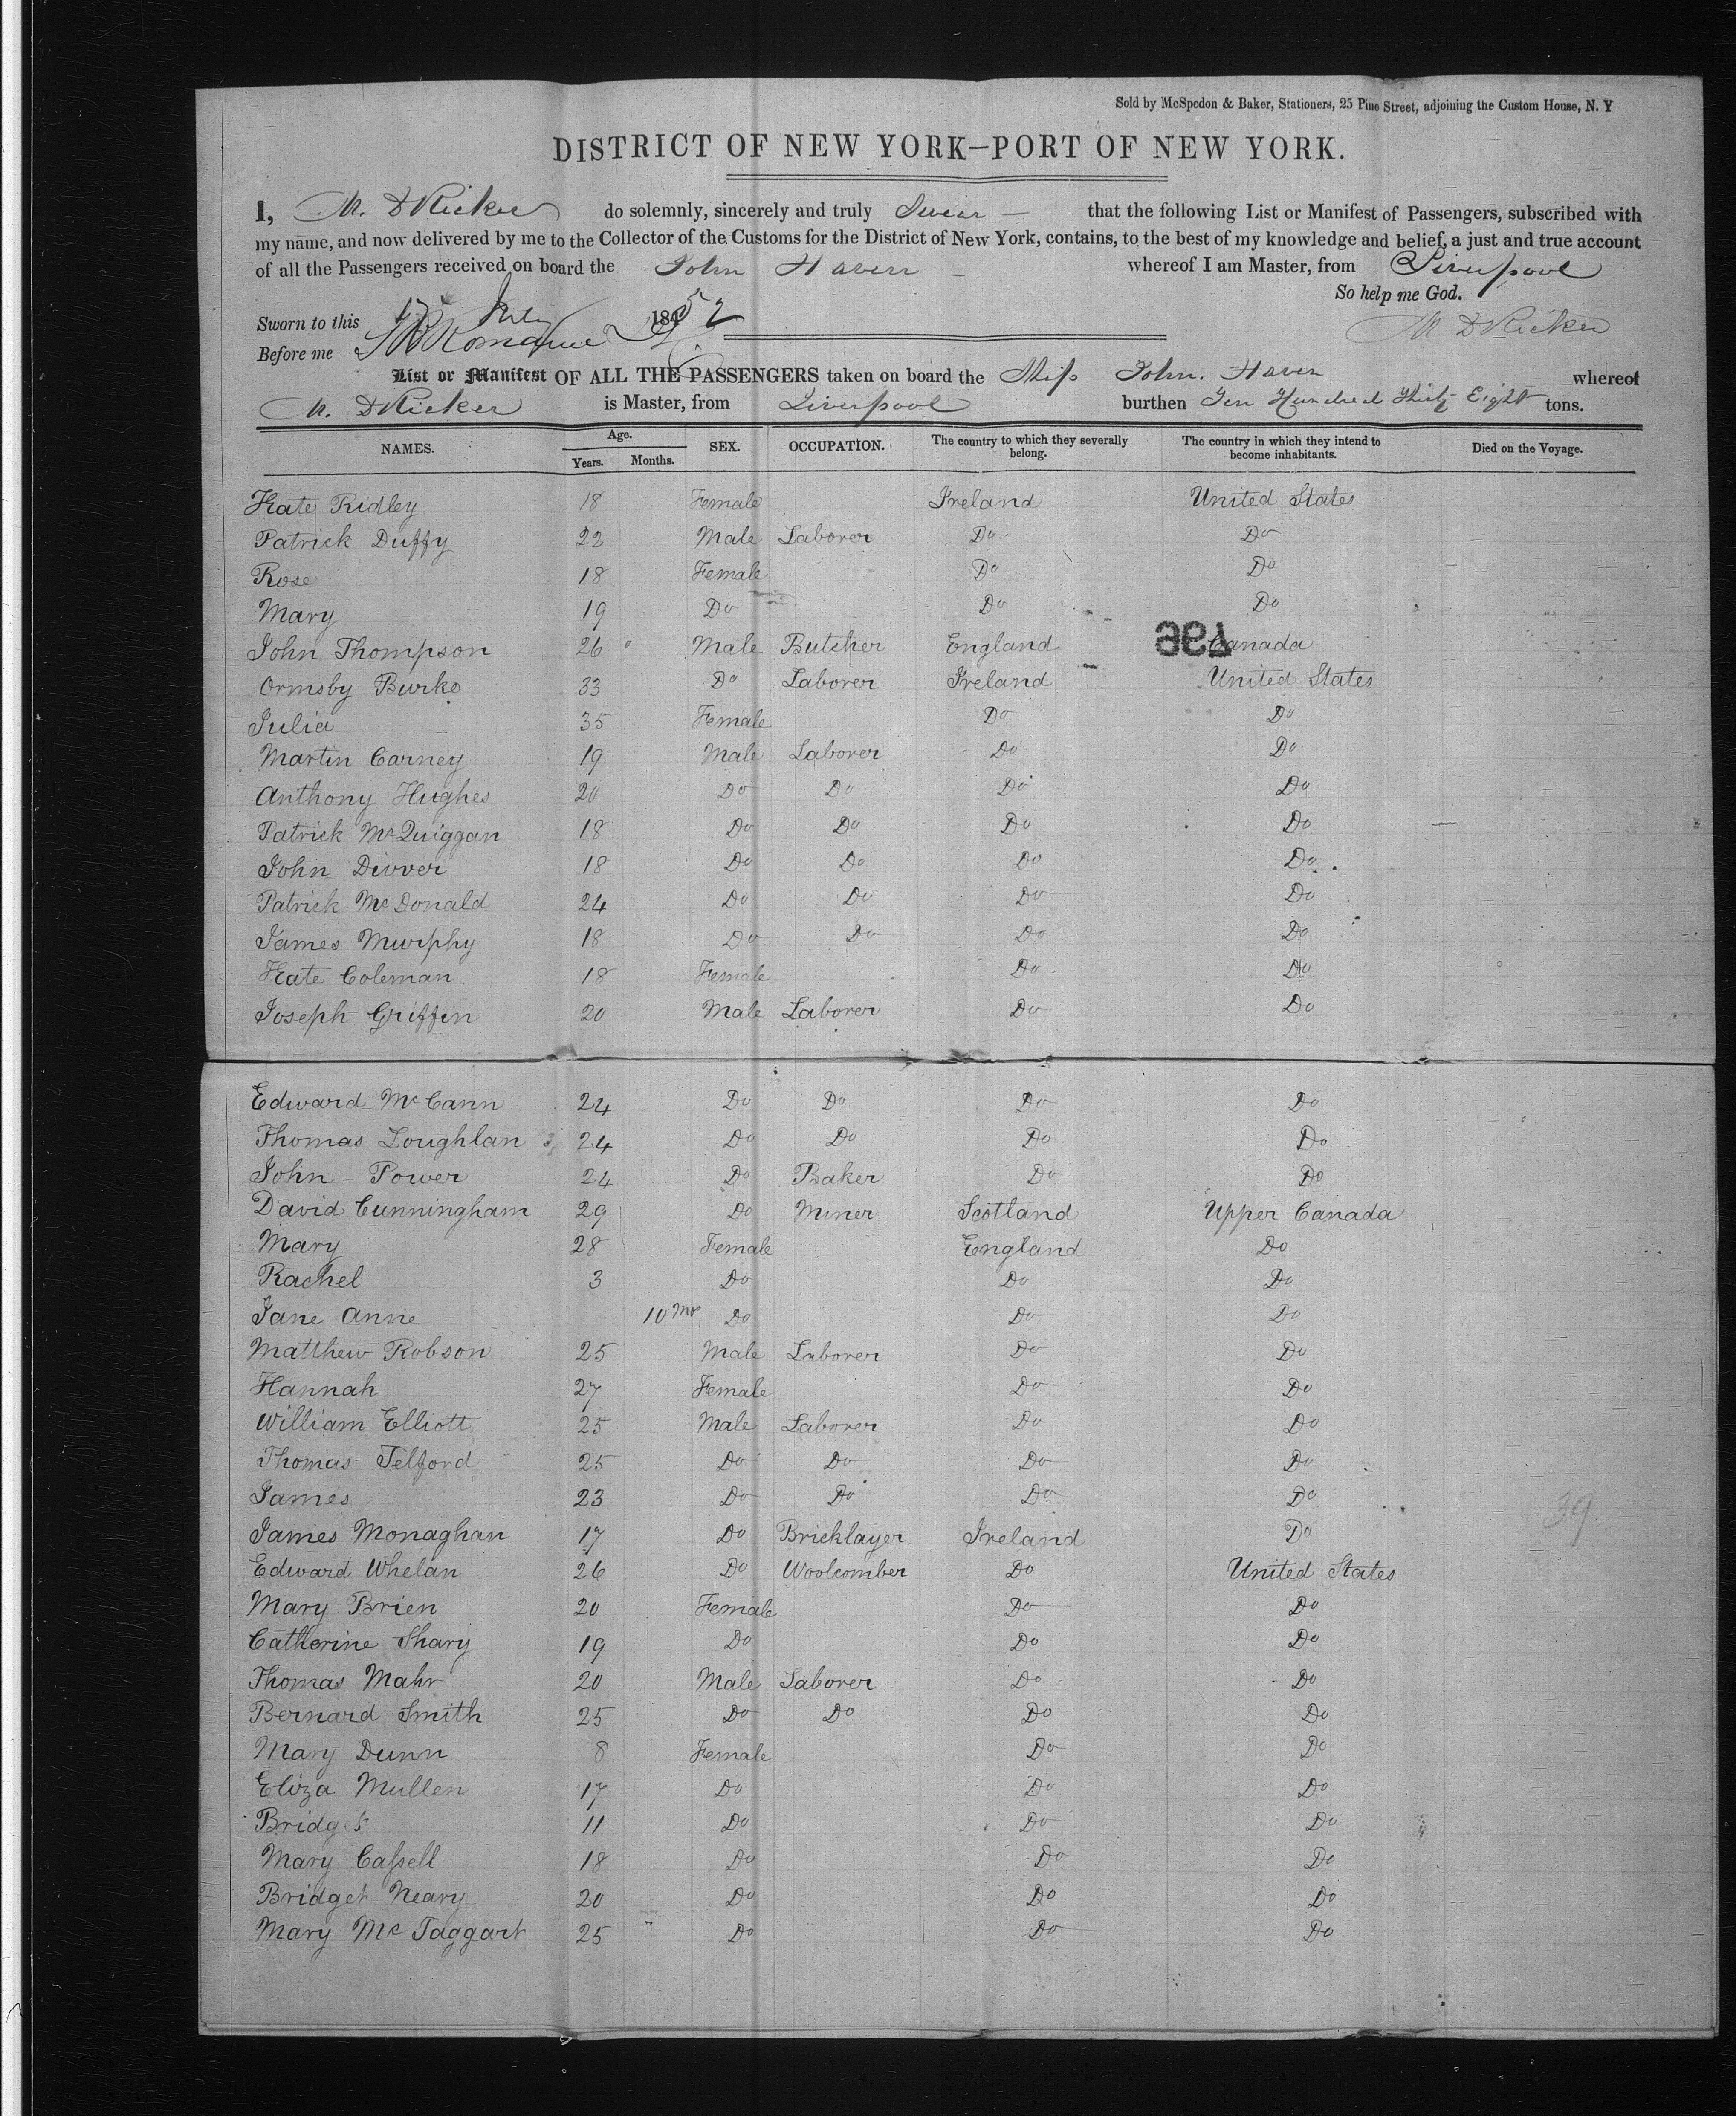 Sold by McSpedon & Baker, Stationers, 25 Pine Street, adjoining the Custom House, N. Y
DISTRICT OF NEW YORK—PORT OF NEW YORK.
I, M. D Ricker do solemnly, sincerely and truly Swear — that the following List or Manifest of Passengers, subscribed with
my name, and now delivered by me to the Collector of the Customs for the District of New York, contains, to the best of my knowledge and belief, a just and true account
of all the Passengers received on board the John Haven — whereof I am Master, from Liverpool
So help me God.
Sworn to this 17 July 1852
M D Ricker
Before me
List or Manifest OF ALL THE PASSENGERS taken on board the Ship John. Haven whereof
M. D Ricker is Master, from Liverpool burthen Ten Hundred Thirty Eight tons.
NAMES. Age. Years. Months. SEX. OCCUPATION. The country to which they severally belong. The country in which they intend to become inhabitants. Died on the Voyage.
Kate Ridley 18 Female Ireland United States
Patrick Duffy 22 Male Laborer Do Do
Rose 18 Female Do Do
Mary 19 Do Do Do
John Thompson 26 Male Butcher England Canada
Ormsby Burke 33 Do Laborer Ireland United States
Julia 35 Female Do Do
Martin Carney 19 Male Laborer Do Do
Anthony Hughes 20 Do Do Do Do
Patrick McQuiggan 18 Do Do Do Do
John Divver 18 Do Do Do Do
Patrick McDonald 24 Do Do Do Do
James Murphy 18 Do Do Do Do
Kate Coleman 18 Female Do Do
Joseph Griffin 20 Male Laborer Do Do
Edward McCann 24 Do Do Do Do
Thomas Loughlan 24 Do Do Do Do
John Power 24 Do Baker Do Do
David Cunningham 29 Do Miner Scotland Upper Canada
Mary 28 Female England Do
Rachel 3 Do Do Do
Jane Anne 10 Mos Do Do Do
Matthew Robson 25 Male Laborer Do Do
Hannah 27 Female Do Do
William Elliott 25 Male Laborer Do Do
Thomas Telford 25 Do Do Do Do
James 23 Do Do Do Do
39
James Monaghan 17 Do Bricklayer Ireland Do
Edward Whelan 26 Do Woolcomber Do United States
Mary Brien 20 Female Do Do
Catherine Shary 19 Do Do Do
Thomas Mahr 20 Male Laborer Do Do
Bernard Smith 25 Do Do Do Do
Mary Dunn 8 Female Do Do
Eliza Mullen 17 Do Do Do
Bridget 11 Do Do Do
Mary Cassell 18 Do Do Do
Bridget Neary 20 Do Do Do
Mary McTaggart 25 Do Do Do